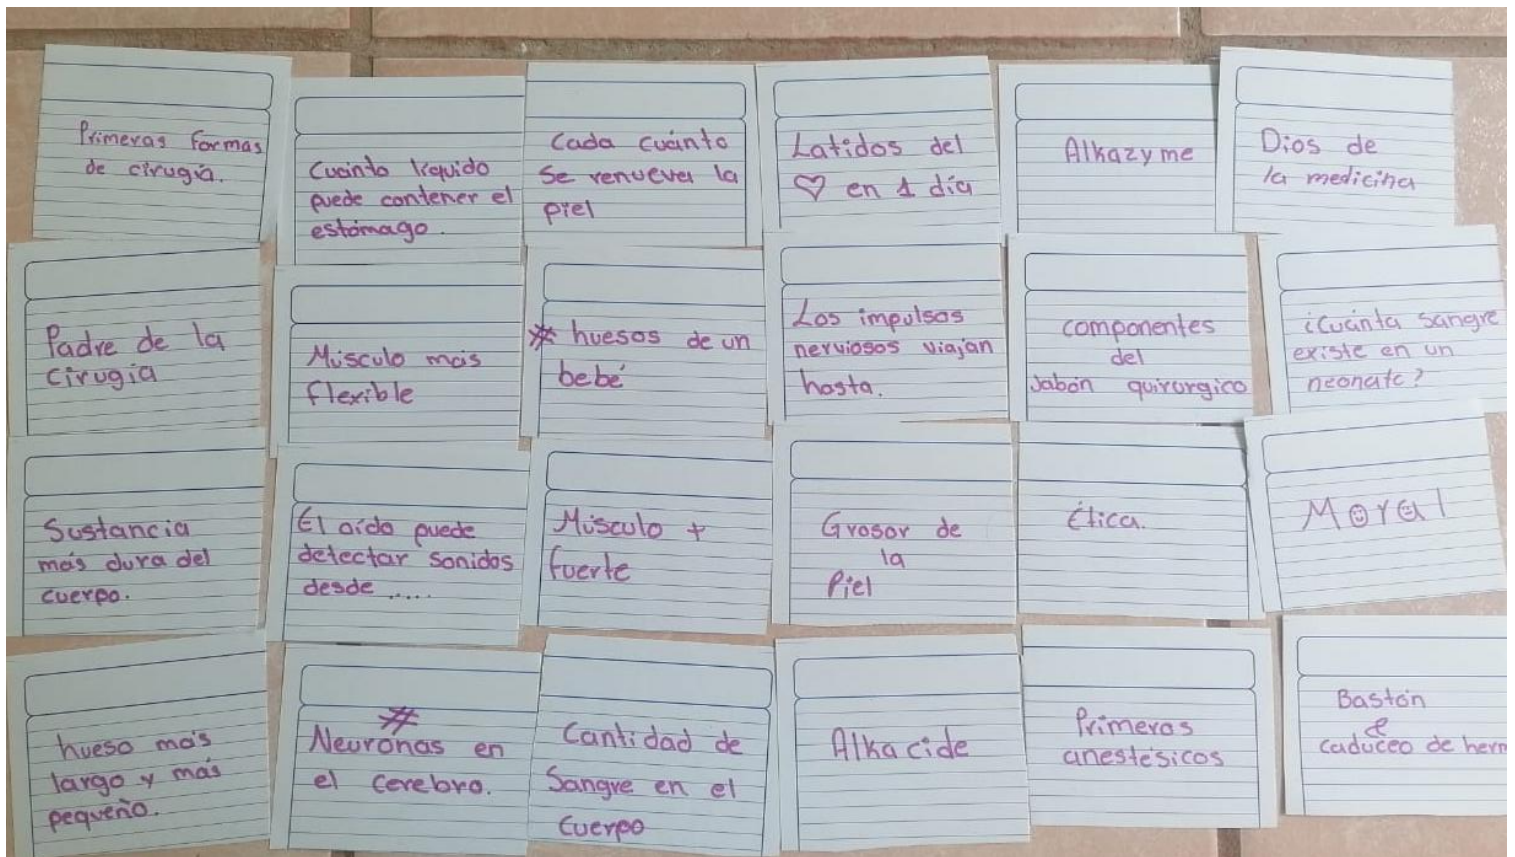 Primeras formas
de cirugía.
Cuánto líquido
puede contener el
estómago.
Cada cuánto
se renueva la
piel
Latidos del
♡ en 1 día
Alkazyme
Dios de
la medicina
Padre de la
cirugía
Músculo más
flexible
# huesos de un
bebé
Los impulsos
nerviosos viajan
hasta.
componentes
del
Jabón quirurgico
¿Cuánta sangre
existe en un
neonato?
Sustancia
más dura del
cuerpo.
El oído puede
detectar sonidos
desde .....
Músculo +
fuerte
Grosor de
la
Piel
Ética.
Moral
hueso más
largo y más
pequeño.
#
Neuronas en
el cerebro.
Cantidad de
Sangre en el
Cuerpo
Alkacide
Primeros
anestésicos
Bastón
e
caduceo de herm